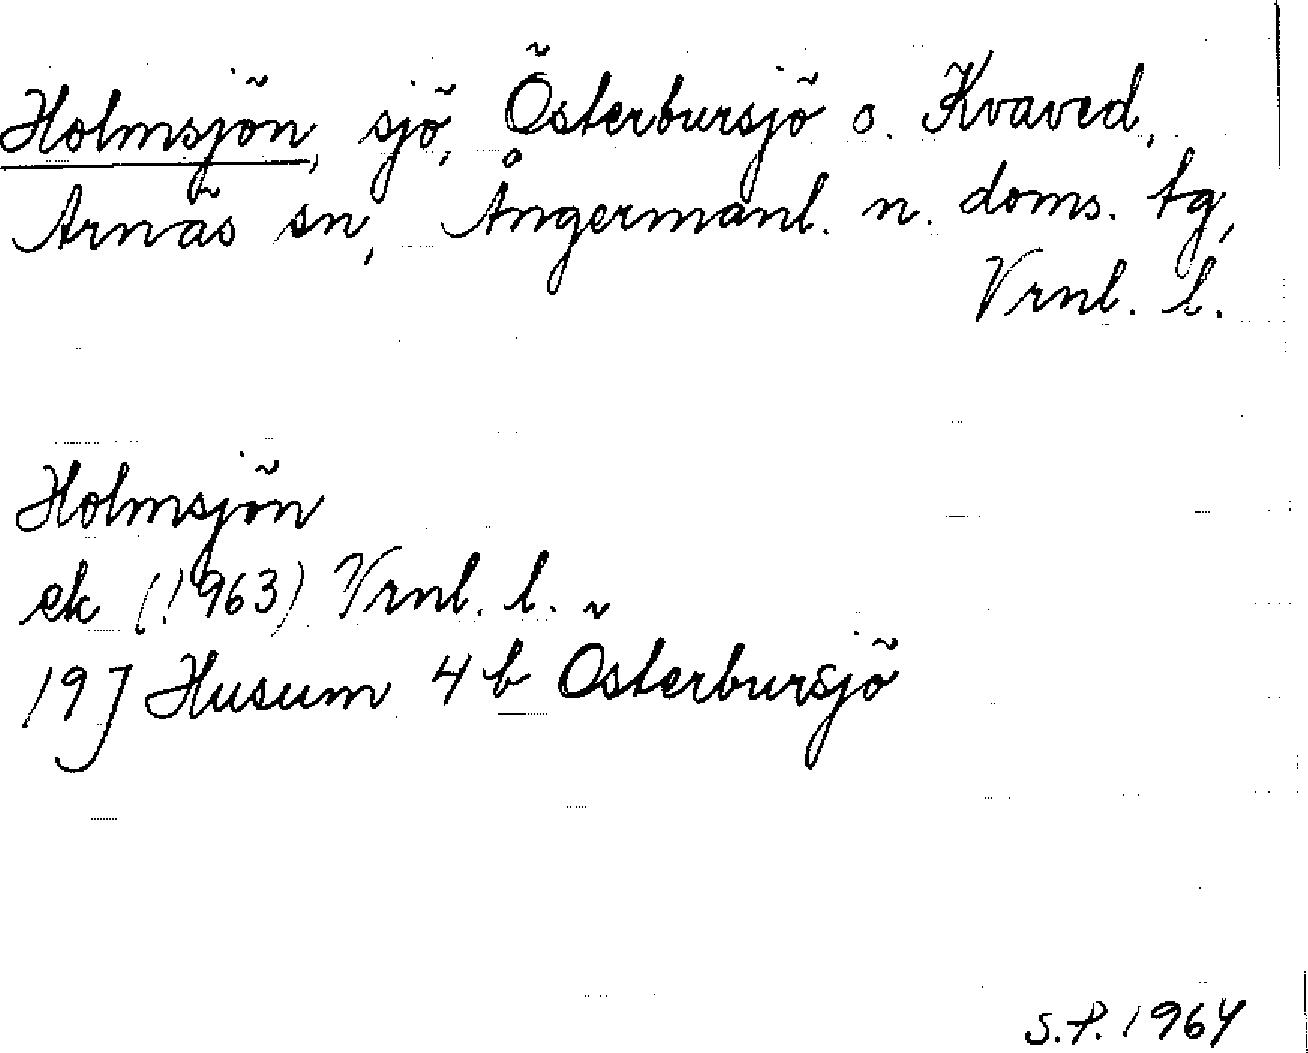 Holmsjön, sjö, Österbursjö o. Kvaved,
Arnäs sn, Ångermanl. n. doms. tg,
Vrnl. l.
Holmsjön
ek (1963) Vrnl. l.
19J Husum 4b Österbursjö
S.P. 1964